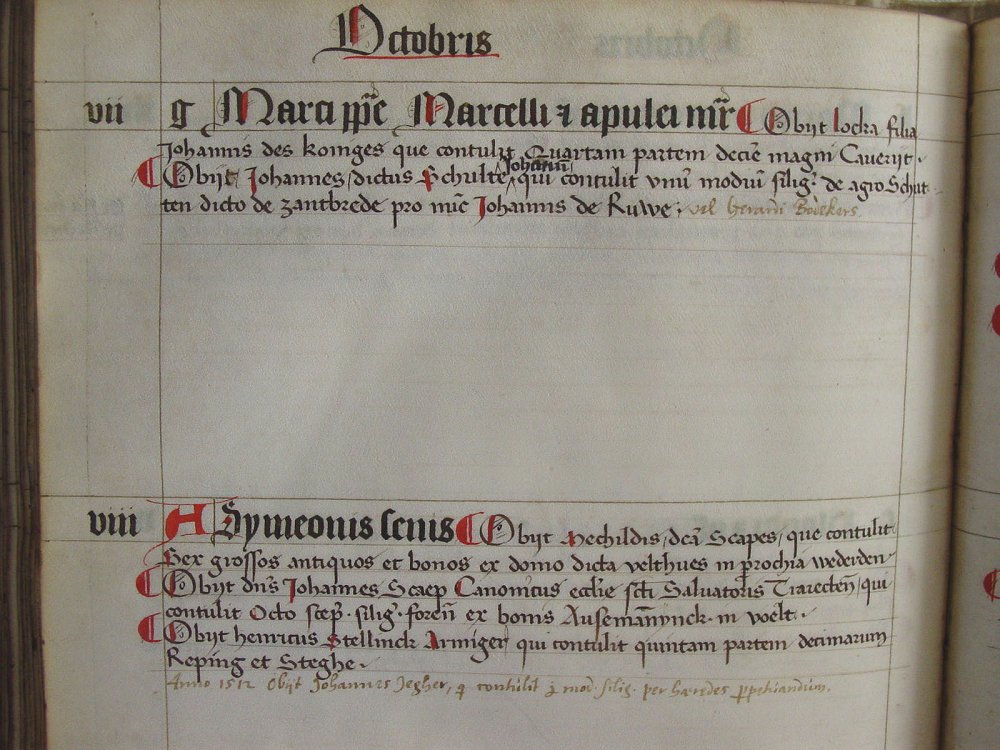 Octobris
vii g Marci ppe Marcelli ⁊ apulei mr̄ Obijt locka filia
Johannis des koinges que contulit Quartam partem decīe magni Caverijt.
Obijt Johannes dictus Schulte qui contulit vnū modiū silig. de agro Schut
ten dicto de zantbrede pro mūc Johannis de Ruwe. vel Gerardi Bodekers
viii A Symeonis senis Obijt Mechildis dcā Scapes, que contulit
Sex grossos antiquos et bonos ex domo dicta velthues in prochia wederden
Obijt dns Johannes Scaep Canonicus ecclie scti Salvatoris Traiecten, qui
contulit Octo scep. silig. foren ex bonis Ausemānynck in voelt.
Obijt henricus Stellinck Armiger qui contulit quintam partem decimarum
Reping et Steghe.
Anno 1512 Obijt Johannes Jegher, q contulit mod. silig. per hæredes ppetuandum.